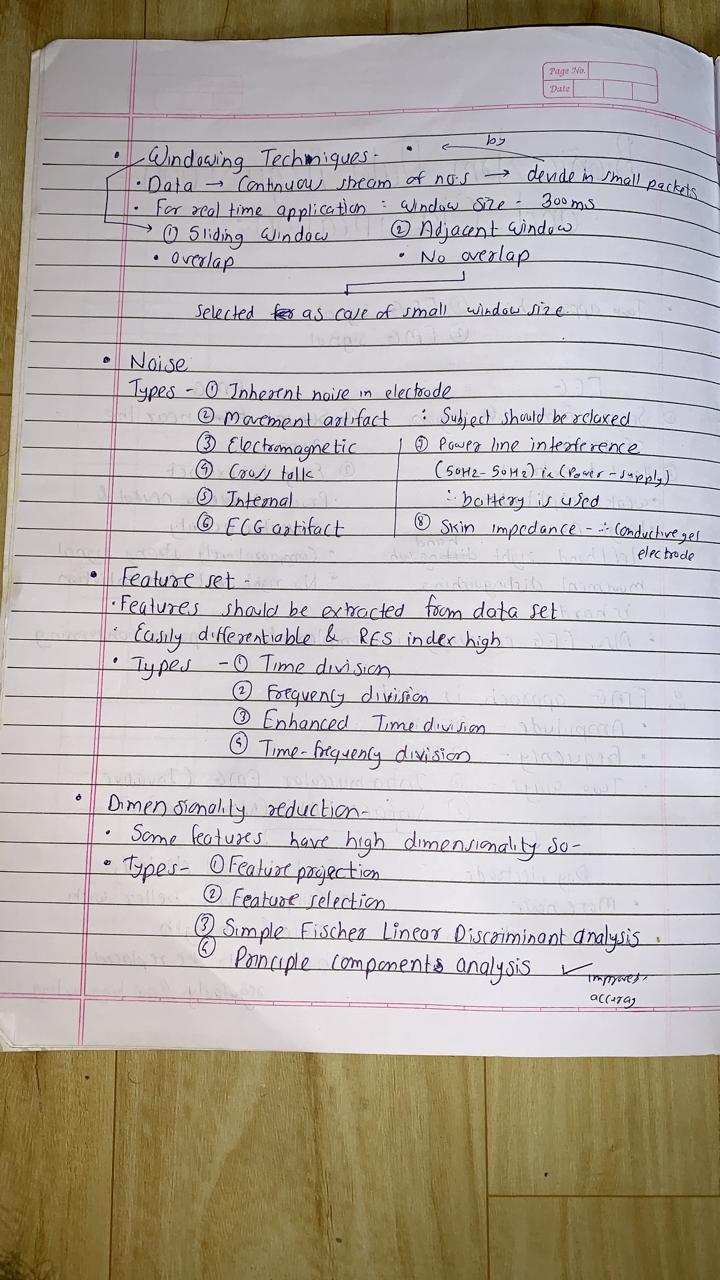 Page No.
Date
by
• Windowing Techniques- •
• Data → Continuous stream of no.s → devide in small packets
• For real time application : window size - 300ms
① Sliding window ② Adjacent window
• Overlap • No overlap
Selected as case of small window size.
• Noise
Types - ① Inherent noise in electrode
② Movement artifact : Subject should be relaxed
③ Electromagnetic ⑦ Power line interference
④ Cross talk (50Hz-50Hz) is (Power-supply)
⑤ Internal ∴ battery is used
⑥ ECG artifact ⑧ Skin impedance - ∴ Conductive gel
electrode
• Feature set -
• Features should be extracted from data set
: Easily differentiable & RES index high
• Types - ① Time division
② Frequency division
③ Enhanced Time division
④ Time-frequency division
• Dimensionality reduction-
• Some features have high dimensionality so-
• Types- ① Feature projection
② Feature selection
③ Simple Fischer Linear Discriminant analysis
④ Principle components analysis ✓ improves
accuracy